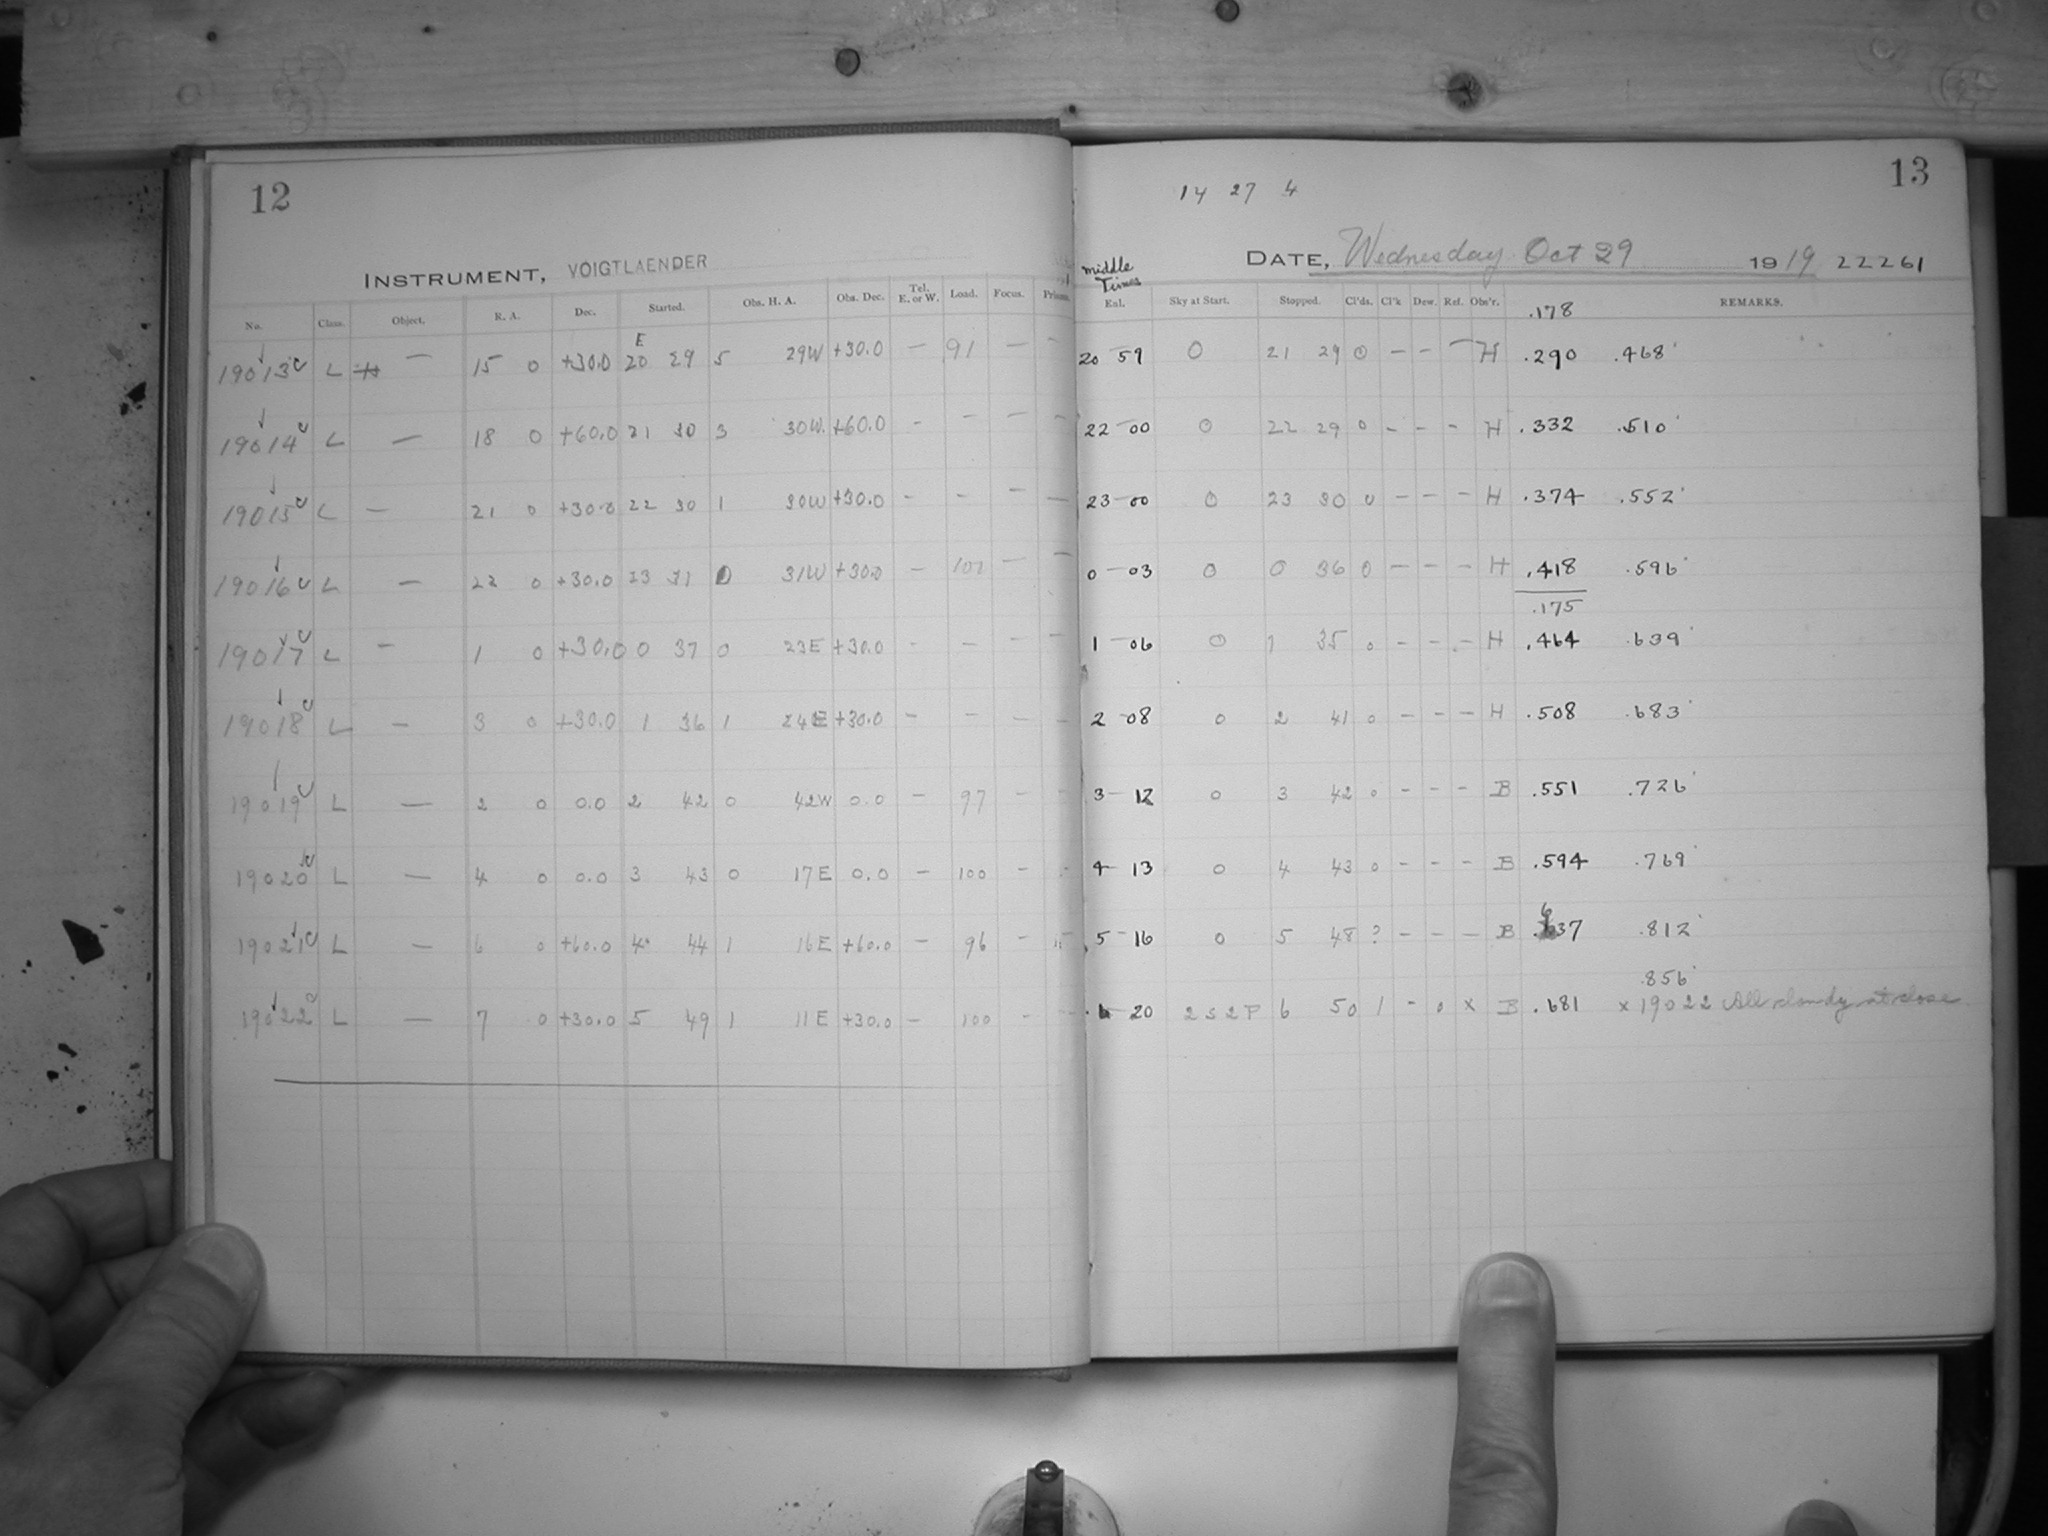 12
INSTRUMENT, VOIGTLAENDER
No. Class. Object. R. A. Dec. Started. Obs. H. A. Obs. Dec. Tel. E. or W. Load. Focus.
E
19013 L H — 15 0 +30.0 20 29 5 29W +30.0 — 91 — —
19014 L — 18 0 +60.0 21 30 3 30W. +60.0 - - — —
19015 L — 21 0 +30.0 22 30 1 30W +30.0 - - — —
19016 L — 22 0 +30.0 23 31 0 31W +30.0 — 102 — —
19017 L — 1 0 +30.0 0 37 0 23E +30.0 - — — —
19018 L — 3 0 +30.0 1 36 1 24E +30.0 - — — —
19019 L — 2 0 0.0 2 42 0 42W 0.0 - 97 — -
19020 L — 4 0 0.0 3 43 0 17E 0.0 — 100 — -
19021 L — 6 0 +60.0 4 44 1 16E +60.0 — 96 -
19022 L — 7 0 +30.0 5 49 1 11E +30.0 — 100 - -
13
14 27 4
DATE, Wednesday Oct 29 1919 22261
middle
Times
Eal. Sky at Start. Stopped. Cl'ds. Cl'k Dew. Ref. Obs'r. REMARKS.
.178
20 59 0 21 29 0 — - — H .290 .468
22 00 0 22 29 0 - - - H .332 .510
23 00 0 23 30 0 - - - H .374 .552
0 03 0 0 36 0 - - - H .418 .596
.175
1 06 0 1 35 0 - - - H .464 .639
2 08 0 2 41 0 - - - H .508 .683
3 12 0 3 42 0 - - - B .551 .726
4 13 0 4 43 0 - - - B .594 .769
5 16 0 5 48 ? - - — B .637 .812
.856
6 20 2 S 2 P 6 50 1 - 0 x B .681 x 19022 All cloudy at close